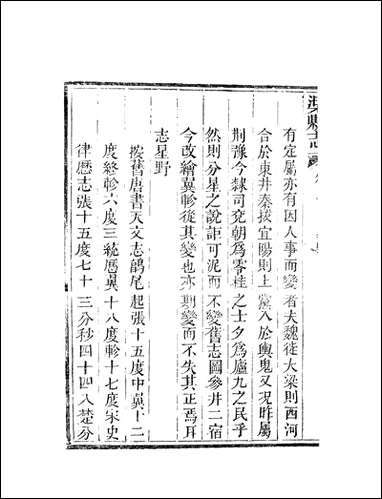 漢縣志
有定屬亦有因人事而變者夫魏徙大梁則西河
合於東井秦拔宜陽則上黨入於輿鬼又况昨屬
荆豫今隸司兖朝為零桂之士夕為廬九之民乎
然則分星之說詎可泥而不變舊志圖參井二宿
今改繪翼軫從其變也亦期變而不失其正焉耳
志星野
按舊唐書天文志鶉尾起張十五度中翼十二
度終軫六度三統曆翼十八度軫十七度宋史
律歷志張十五度七十三分秒四十四入楚分